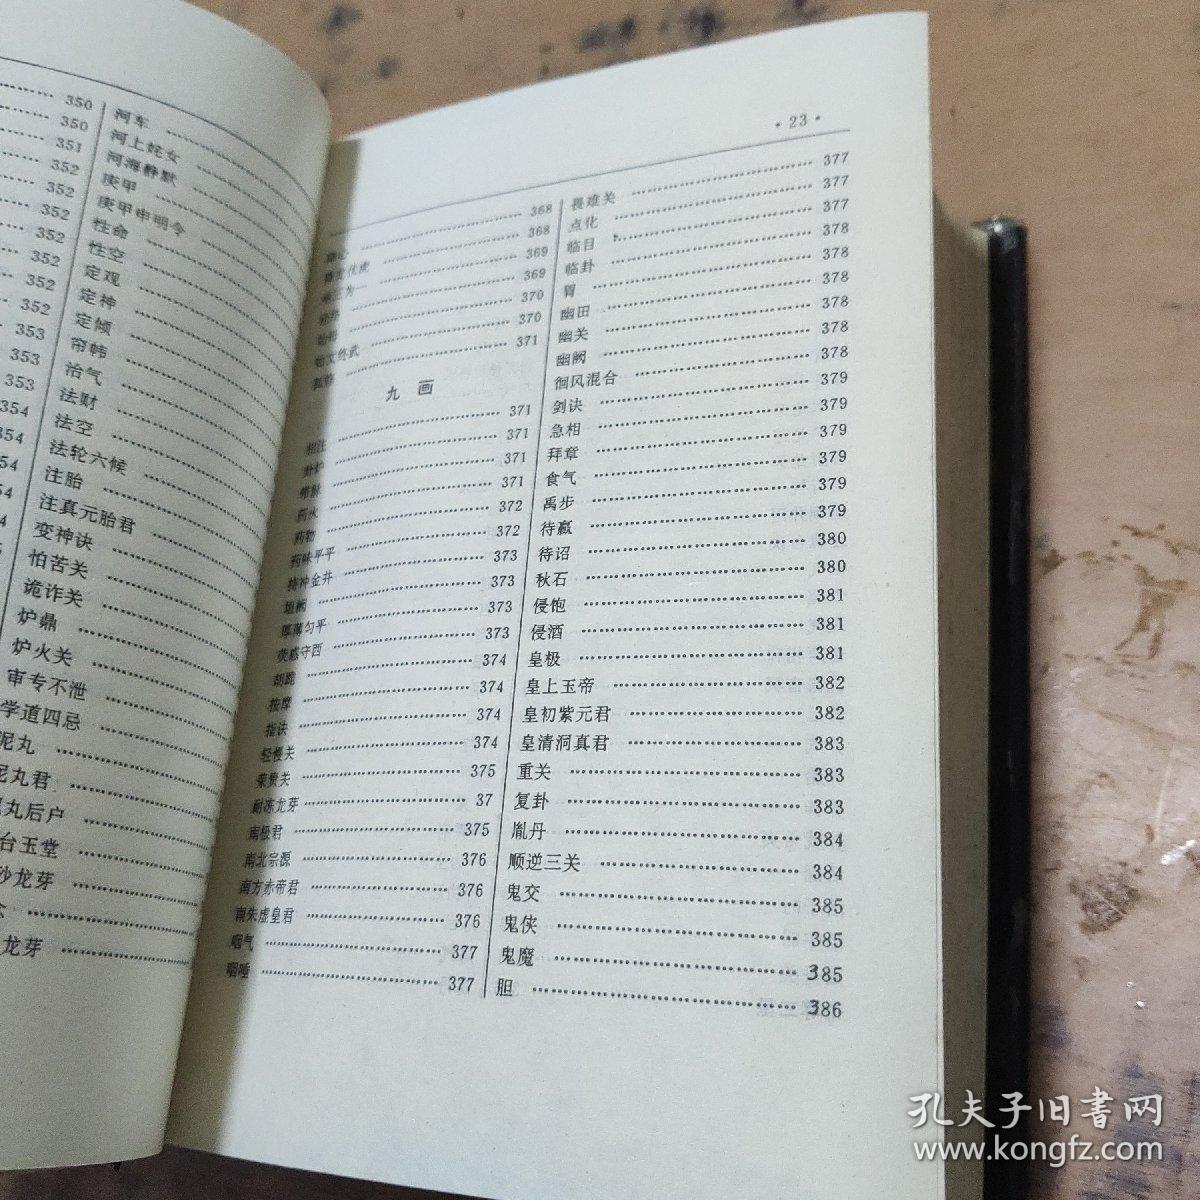 350
350
351
352
352
352
352
352
352
352
353
353
353
354
354
54
54
河车
河上姹女
河海静默
庚甲
庚甲申明令
性命
性空
定观
定神
定倾
帘帏
治气
法财
法空
法轮六候
注胎
注真元胎君
变神诀
怕苦关
诡诈关
炉鼎
炉火关
审专不泄
学道四忌
泥丸
泥丸君
丸后户
台玉堂
砂龙芽
龙芽
·23·
368
368
369
369
370
始文终武 370
371
九 画
相注 371
卦炉 371
带脉 371
药火 371
药物 372
药味平平 372
持冲金井 373
垣阙 373
厚薄匀平 373
荧惑守西 373
胡跪 374
按摩 374
指诀 374
轻慢关 374
荣贵关 375
耐冻龙芽 37
南极君 375
南北宗源 376
南方赤帝君 376
南朱虚皇君 376
咽气 377
咽唾 377
畏难关 377
点化 377
临目 377
临卦 378
胃 378
幽田 378
幽关 378
幽阙 378
徊风混合 378
剑诀 379
急相 379
拜章 379
食气 379
禹步 379
待赢 379
待诏 380
秋石 380
侵饱 381
侵酒 381
皇极 381
皇上玉帝 382
皇初紫元君 382
皇清洞真君 383
重关 383
复卦 383
胤丹 384
顺逆三关 384
鬼交 385
鬼侠 385
鬼魔 385
胆 386
孔夫子旧书网
www.kongfz.com